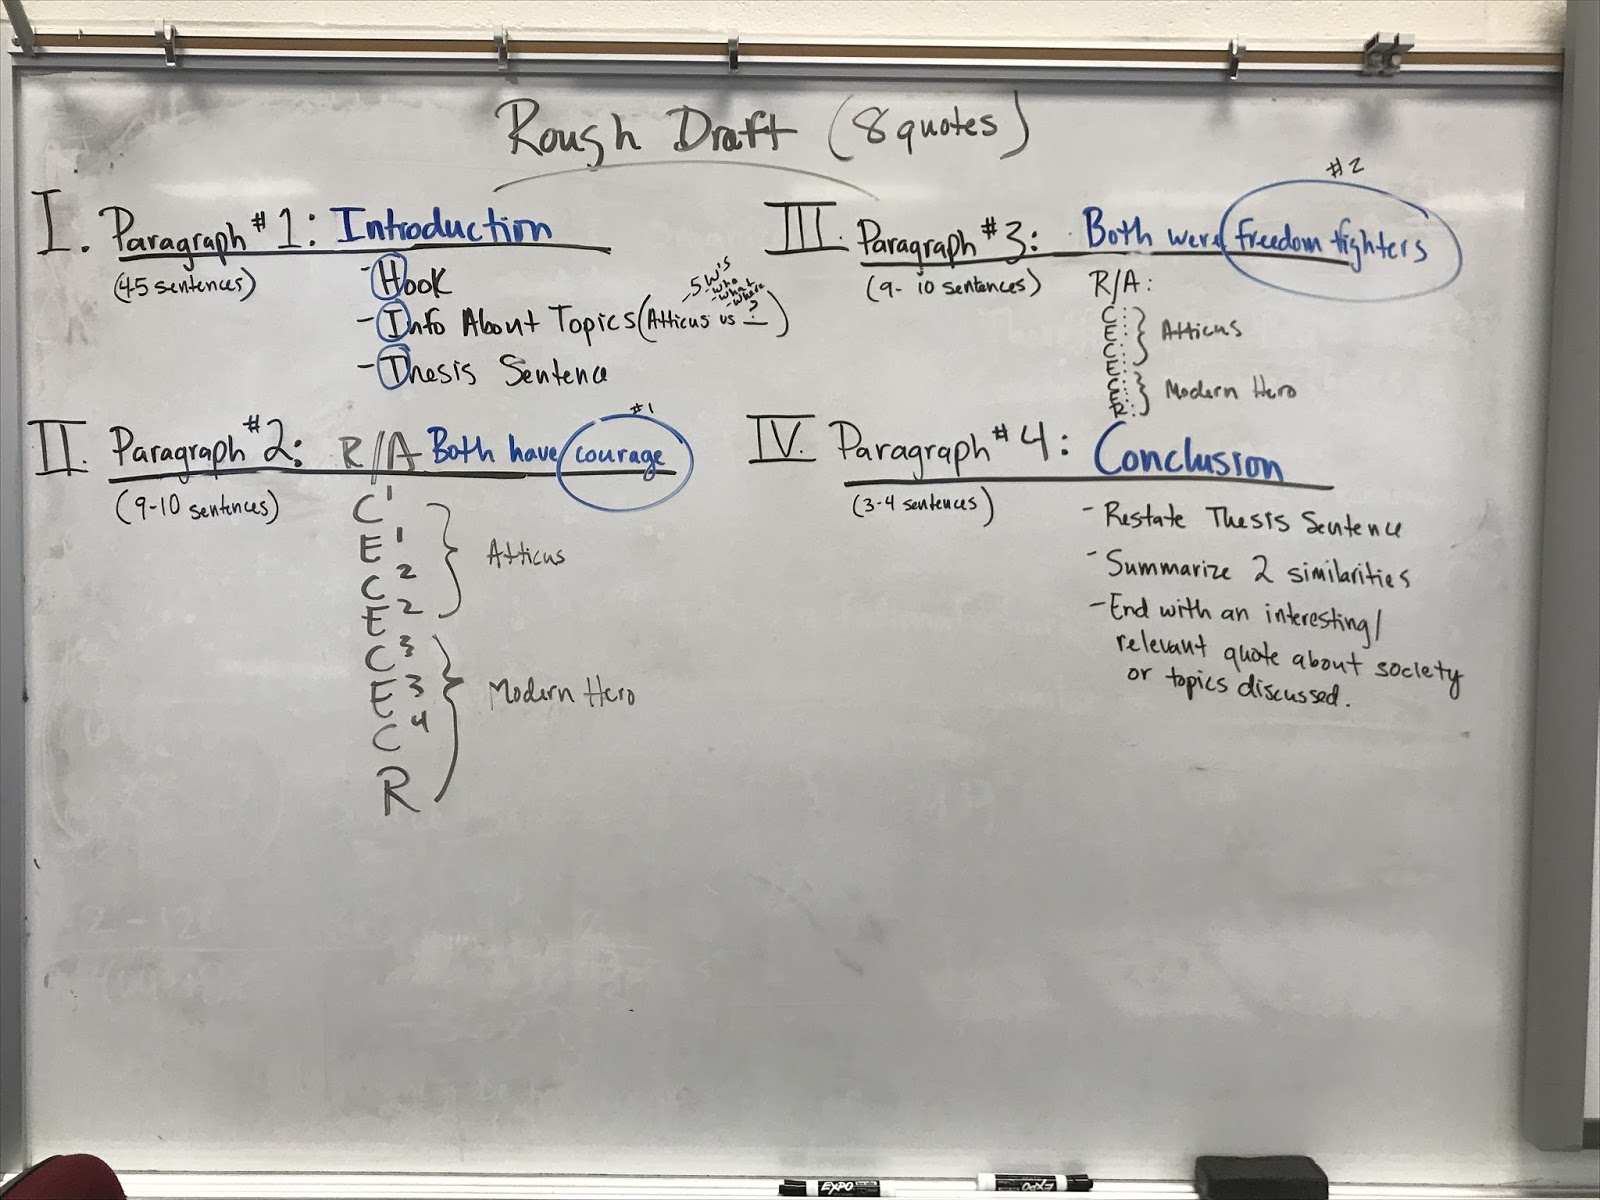 Rough Draft (8 quotes)
I. Paragraph #1: Introduction
(4-5 sentences)
- Hook
- Info About Topics (Atticus vs ?)
- 5 W's
- who
- what
- where
- Thesis Sentence
#1
II. Paragraph #2: R/A Both have courage
(9-10 sentences)
C1
E1
C2
E2
Atticus
C3
E3
C4
R
Modern Hero
#2
III. Paragraph #3: Both were freedom fighters
(9-10 sentences)
R/A:
C:
E:
C:
E:
Atticus
C:
E:
R:
Modern Hero
IV. Paragraph #4: Conclusion
(3-4 sentences)
- Restate Thesis Sentence
- Summarize 2 similarities
- End with an interesting/
relevant quote about society
or topics discussed.
EXPO
EXPO